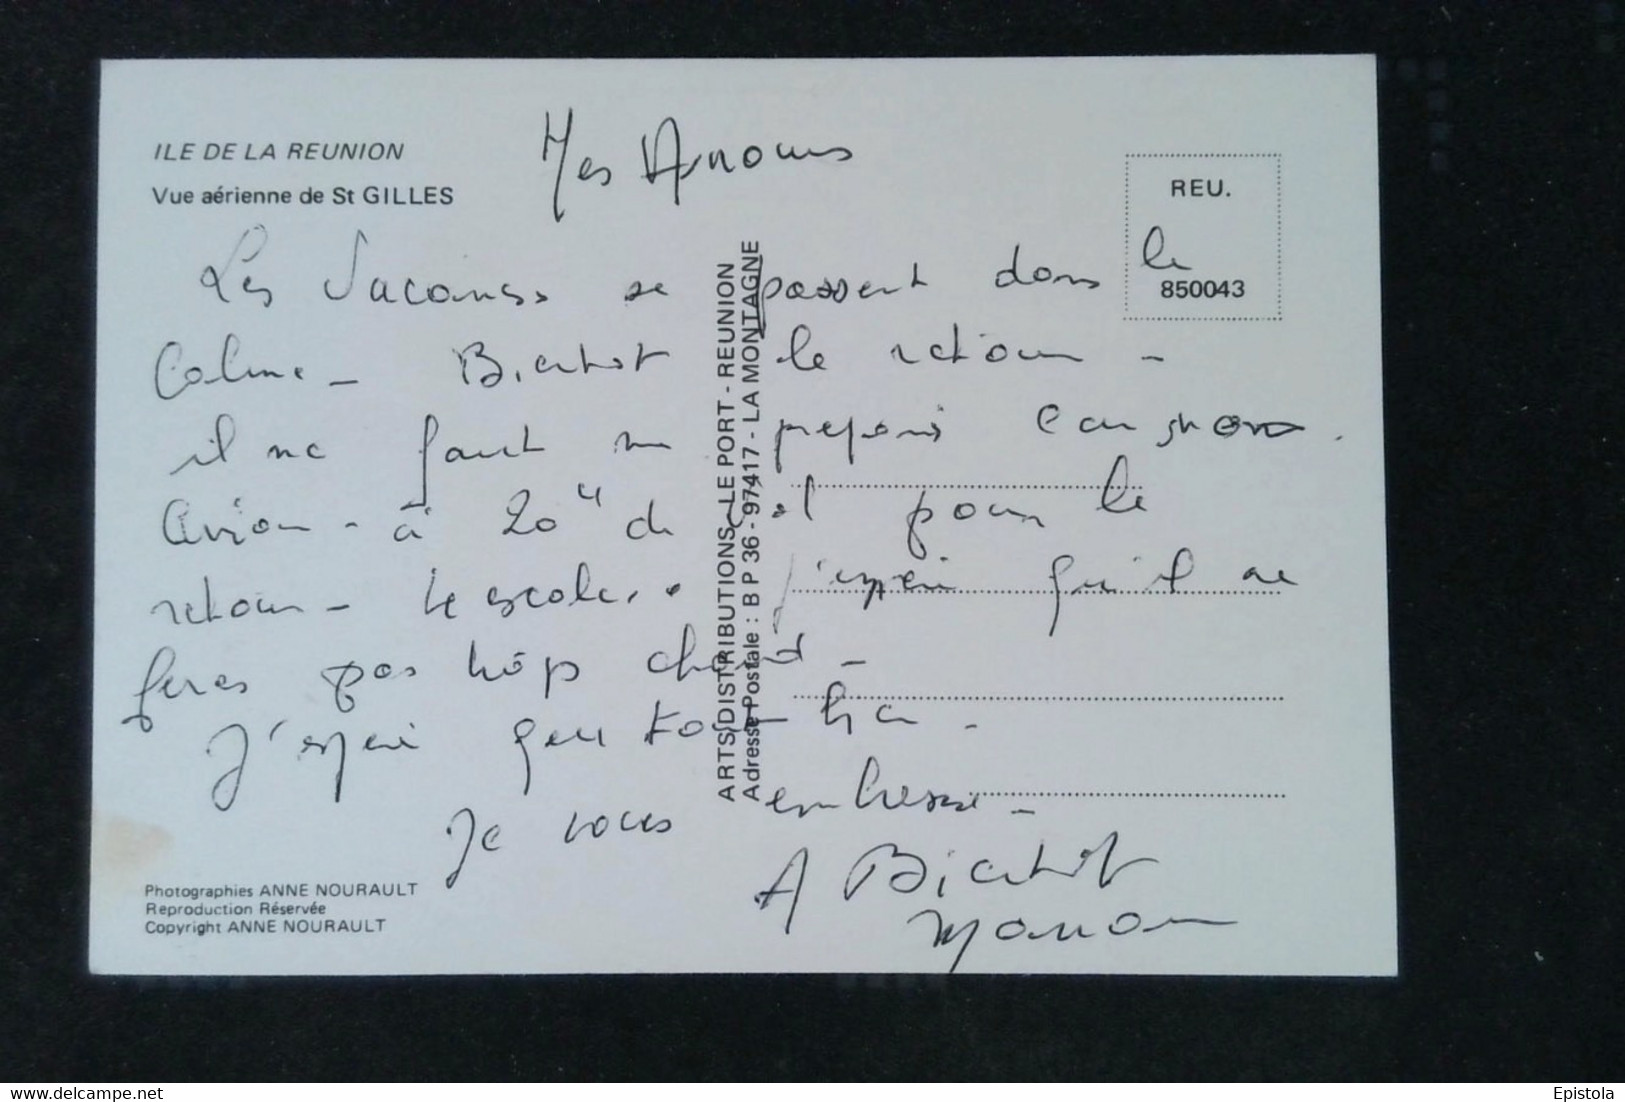 ILE DE LA REUNION
Vue aérienne de St GILLES
Mes Amours
REU.
850043
Les Vacances se passent dans le
Calme - Bientôt le retour -
il ne faut
avion - à 20H de vol pour le
retour - j'espère qu'il ne
feras pas trop chaud -
J'espère que tout va
Je vous embrasse -
A Bientôt
Manon
ARTS DISTRIBUTIONS - LE PORT - REUNION
Adresse Postale : B P 36 - 97417 - LA MONTAGNE
Photographies ANNE NOURAULT
Reproduction Réservée
Copyright ANNE NOURAULT
delcampe.net
Epistola